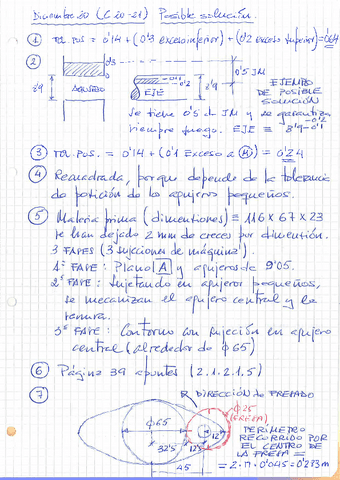 Diciembre 20 (C 20-21) Posible solución.
① TOL POS = 0'14 + (0'3 exceso inferior) + (0'2 exceso superior) = 0'64
②
0'3
8'9
AGUJERO
EJE
-0'1
-0'2
8'9
0'5 JM
EJEMPLO
DE POSIBLE
SOLUCIÓN
Se tiene 0'5 de JM y se garantiza
siempre juego. EJE ≡ 8'9 -0'1 -0'2
③ TOL. POS. = 0'14 + (0'1 Exceso a Ⓜ) = 0'24
④ Recuadrada, porque depende de la tolerancia
de posición de los agujeros pequeños.
⑤ Materia prima (dimensiones) ≡ 116 x 67 x 23
se han dejado 2 mm de creces por dimensión.
3 FASES (3 sujecciones de máquina).
1ª FASE: Plano A y agujeros de 9'05.
2ª FASE: Sujetando en agujeros pequeños,
se mecanizan el agujero central y la
ranura.
3ª FASE: Contorno con sujeción en agujero
central (alrededor de φ65)
⑥ Página 39 apuntes (2.1.2.1.5)
⑦
DIRECCIÓN de FRESADO
φ65
φ25
(FRESA)
32'5
12'5
12'
45
PERÍMETRO
RECORRIDO POR
EL CENTRO DE
LA FRESA =
= 2·π·0'045 = 0'283 m